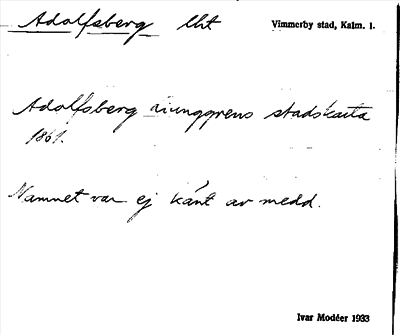 Adolfsberg lht Vimmerby stad, Kalm. l.
Adolfsberg Ljunggrens stadskarta
1861.
Namnet var ej känt av medd.
Ivar Modéer 1933